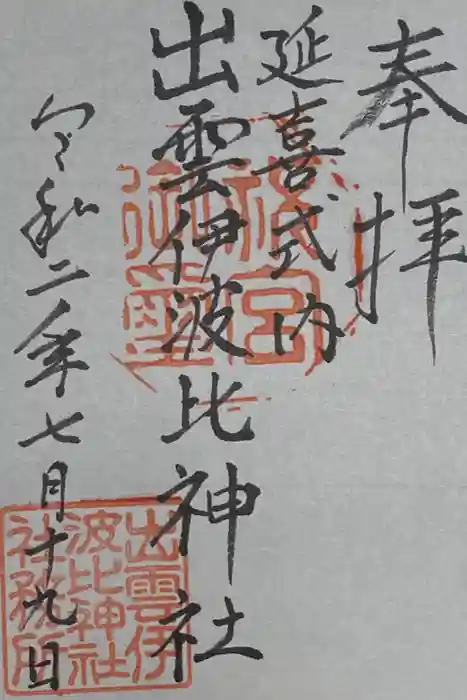 奉拝
延喜式内
出雲伊波比神社
令和二年七月十九日
出雲伊
波比神社
社務所